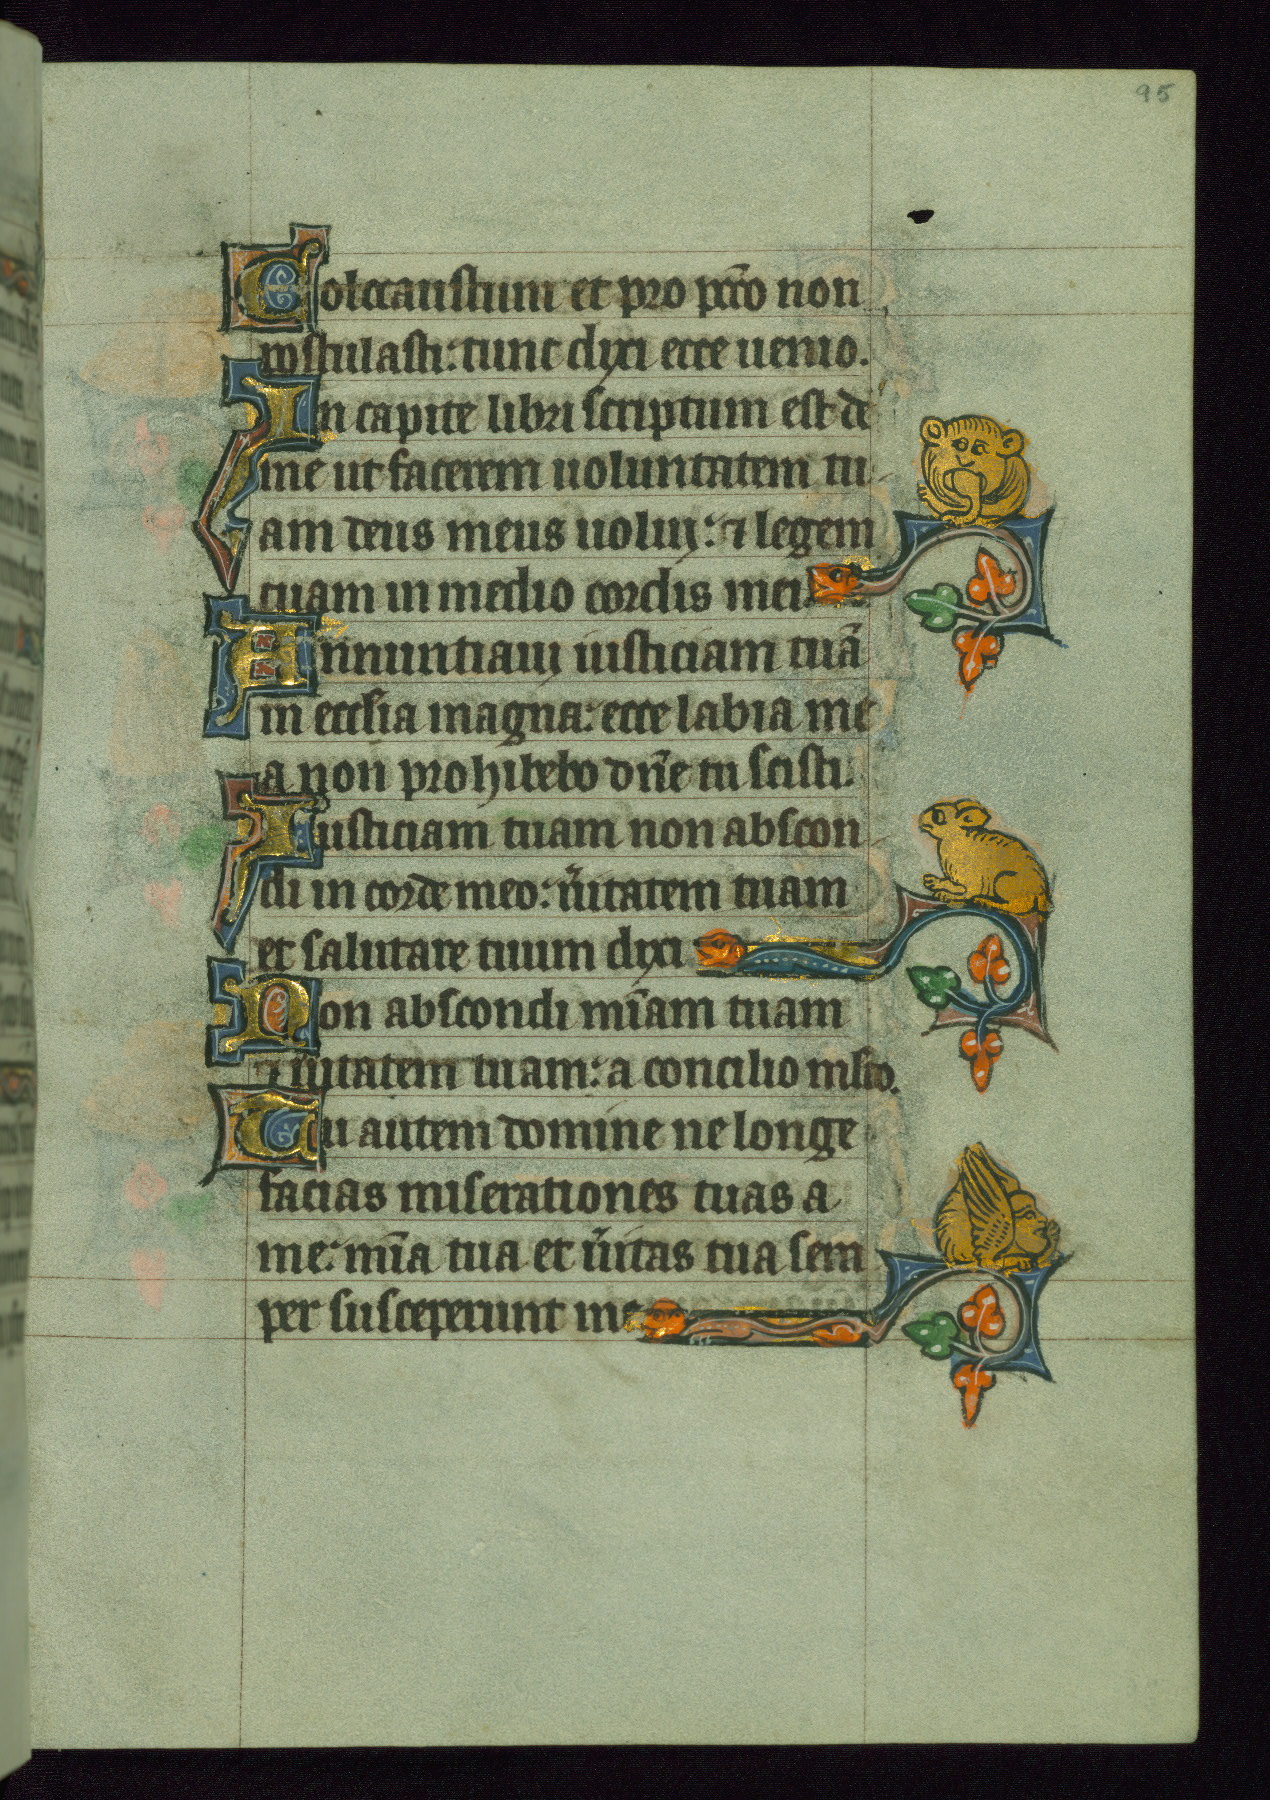 95
Eolocaustum et pro pcc̄o non
postulasti: tunc dixi ecce uenio.
In capite libri scriptum est de
me ut facerem uoluntatem tu
am deus meus uolui: ⁊ legem
tuam in medio cordis mei
Annuntiaui iusticiam tuā
in ecclesia magna: ecce labia me
a non prohibebo dn̄e tu scisti.
Iusticiam tuam non abscon
di in corde meo: ũitatem tuam
et salutare tuum dixi
Non abscondi mīam tuam
⁊ ũitatem tuam: a concilio
Tu autem domine ne longe
facias miserationes tuas a
me: mīa tua et ũitas tua sem
per susceperunt me